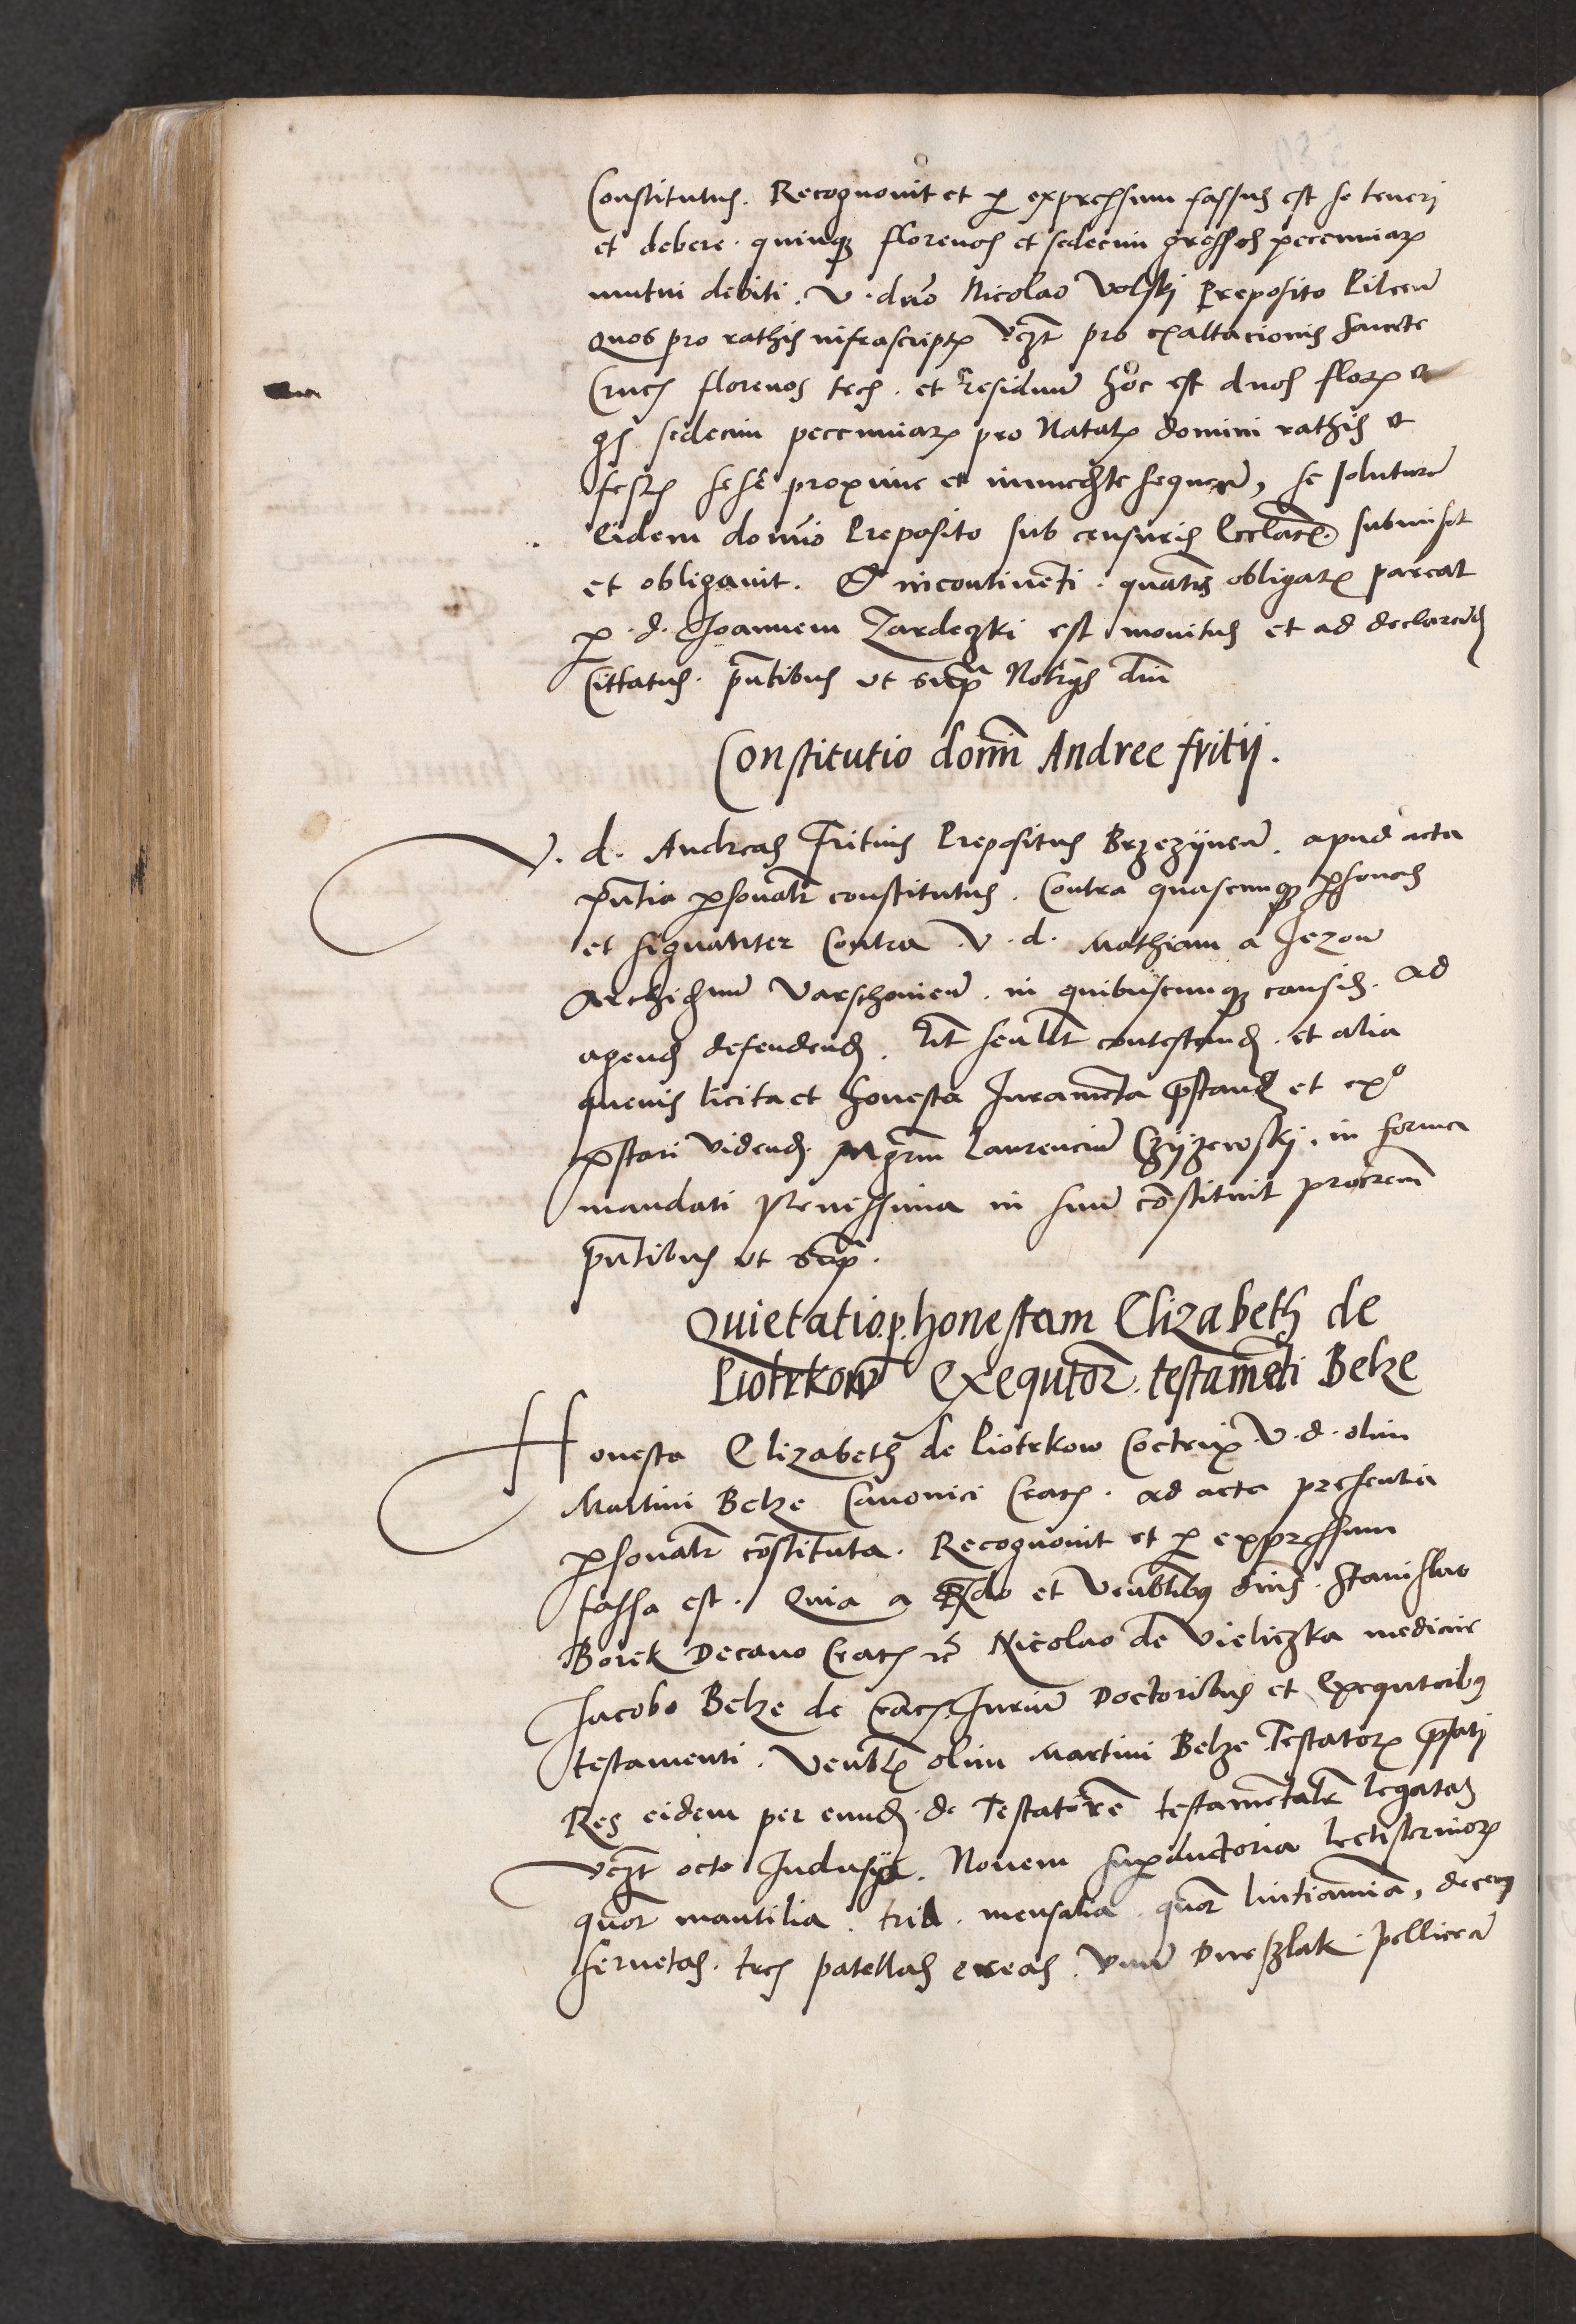 Constitutus. Recognovit et p expressum fassus est se teneri
et debere. quinqȝ florenos et sedecim grossos pecuniarꝝ
mutui debiti. V. dno Nicolao Volski Preposito Pilcen̄
Quos pro rathis infrascriptꝭ vcꝫt pro exaltacionis sancte
Crucꝭ florenos tres. et residuum hoc est duos florꝭ et
gs sedecim pecuniarꝝ pro Natalꝭ domini rathis et
festꝭ sese proxime et immedte sequen̄, se soluturū
Eidem domino Preposito sub censuris Ecclacꝭ. submisit
et obligavit. Et incontinēti. quatn̄ obligatꝭ pareat
p. d. Joannem Zardeczki est monitus et ad declarand
Cittatus. pn̄tibus ut supra Notarijs dm̄
Constitutio domī Andree fritij.
V. d. Andreas Fritius Prepositus Brzezÿnen̄. apud acta
pn̄tia psonalr̄ constitutus. Contra quascunqȝ psonas
et signanter Contra V. d. Mathiam a Jezow
Archidnum Varschovien̄. in quibuscunqȝ causis. ad
agend defendend. lit̄ seu lit̄ contestand. et alia
quevis licita et honesta Juramēta pstand et exº
pstari vidend. Mgrm̄ Laurencium Czÿzewskj. in forma
mandati plenissima in suum cōstituit procrem̄
pn̄tibus ut supra.
Quietatio p. honestam Elizabeth de
Piotrkow Exequtor. testamēti Belze
Honesta Elizabeth de Piotrkow Coctrix V. d. olim
Martini Belze Canonici Cracꝭ. ad acta presentia
psonalr̄ cōstituta. Recognovit et p expressum
fassa est. Quia a Rdo et Venblibus dnis. Stanislao
Borek Decano Cracꝭ rc̄ Nicolao de Vieliczka medicine
Jacobo Belze de Cracꝭ. Jurium Doctoribus et Exequtoribus
testamenti. Venblꝭ olim Martini Belze Testatorꝭ pfatj
Res eidem per eund. de Testatorē testamētalr̄ legatas
vcꝫt octo Indusÿa. Novem supductoria lectisterniorꝝ
quor mantilia. tria. mensalia. quor lintiamia, decem
servetas. tres patellas ereas. vnum Dueszlak pelliceā